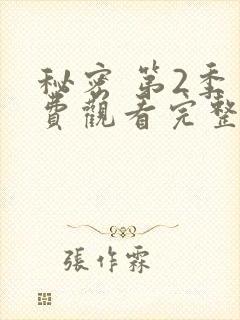 秘密 第2季
費觀看完整
張作霖